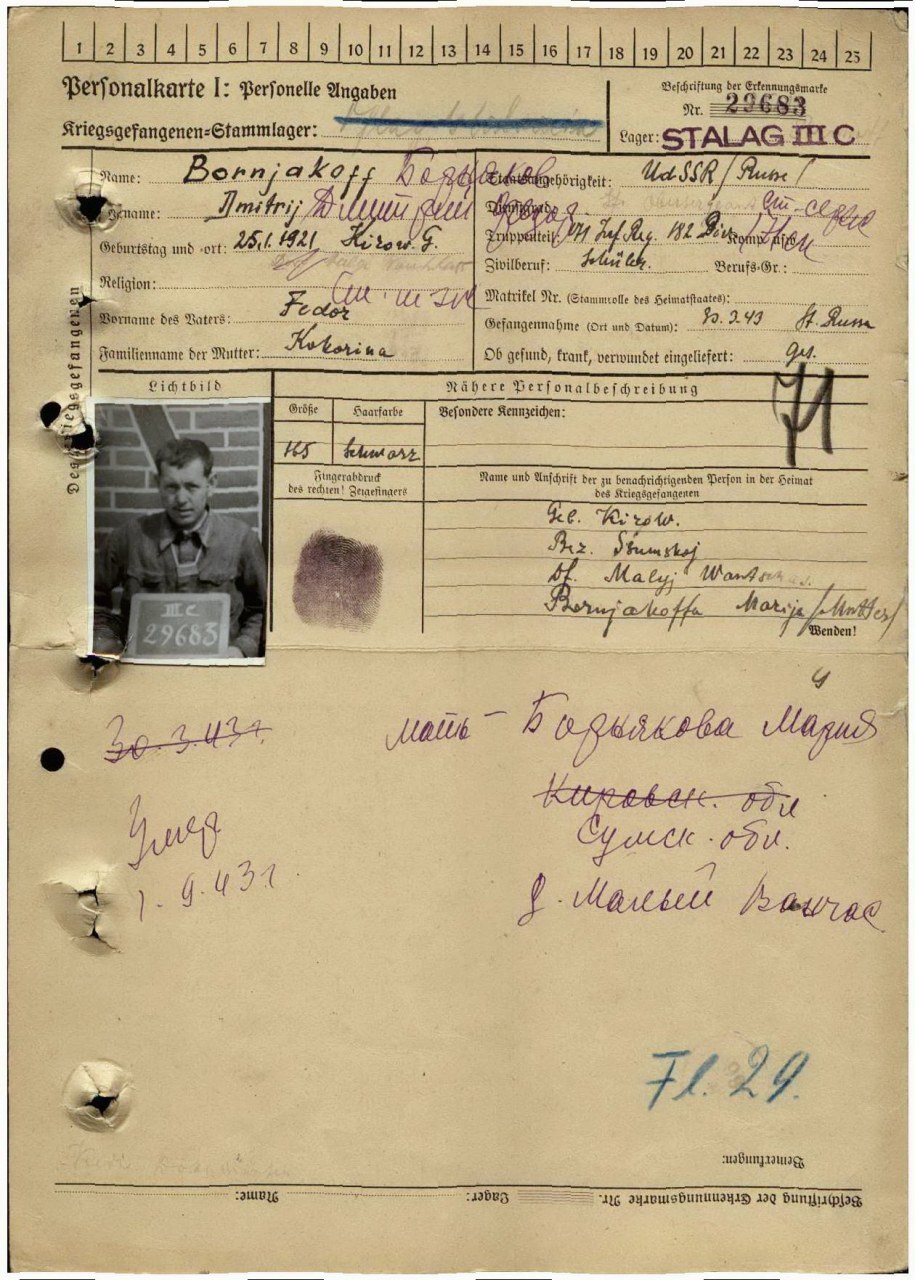 1 2 3 4 5 6 7 8 9 10 11 12 13 14 15 16 17 18 19 20 21 22 23 24 25
Personalkarte I: Personelle Angaben
Beschriftung der Erkennungsmarke
Nr. 29683
Kriegsgefangenen-Stammlager:
Lager: STALAG III C
Des Kriegsgefangenen
Name: Bornjakoff Борняков
Staatsangehörigkeit: UdSSR / Russe /
Vorname: Dmitrij Дмитрий
Dienstgrad:
Geburtstag und -ort: 25.1.1921 Kirow. G.
Truppenteil: 171 Inf. Reg. 182 Div. Komp. usw.:
Zivilberuf: Schüler. Berufs-Gr.:
Religion:
Matrikel Nr. (Stammrolle des Heimatstaates):
Vorname des Vaters: Fedor
Gefangennahme (Ort und Datum): 30.3.43 St. Russa
Familienname der Mutter: Kokorina
Ob gesund, krank, verwundet eingeliefert: ges.
Lichtbild
Nähere Personalbeschreibung
Größe Haarfarbe
Besondere Kennzeichen:
165 Schwarz
Fingerabdruck
des rechten! Zeigefingers
Name und Anschrift der zu benachrichtigenden Person in der Heimat
des Kriegsgefangenen
Geb. Kirow.
Bez. Šumskoj
Df. Malyj
Bornjakoffa Marija /Mutter/
Wenden!
III C
29683
30.3.43г.
мать - Борнякова Мария
Кировск. обл
Сумск. обл.
Умер
1.9.43г.
д. Малый Ванчас
Fl. 29.
Bemerkungen:
Beschriftung der Erkennungsmarke Nr. Lager: Name: